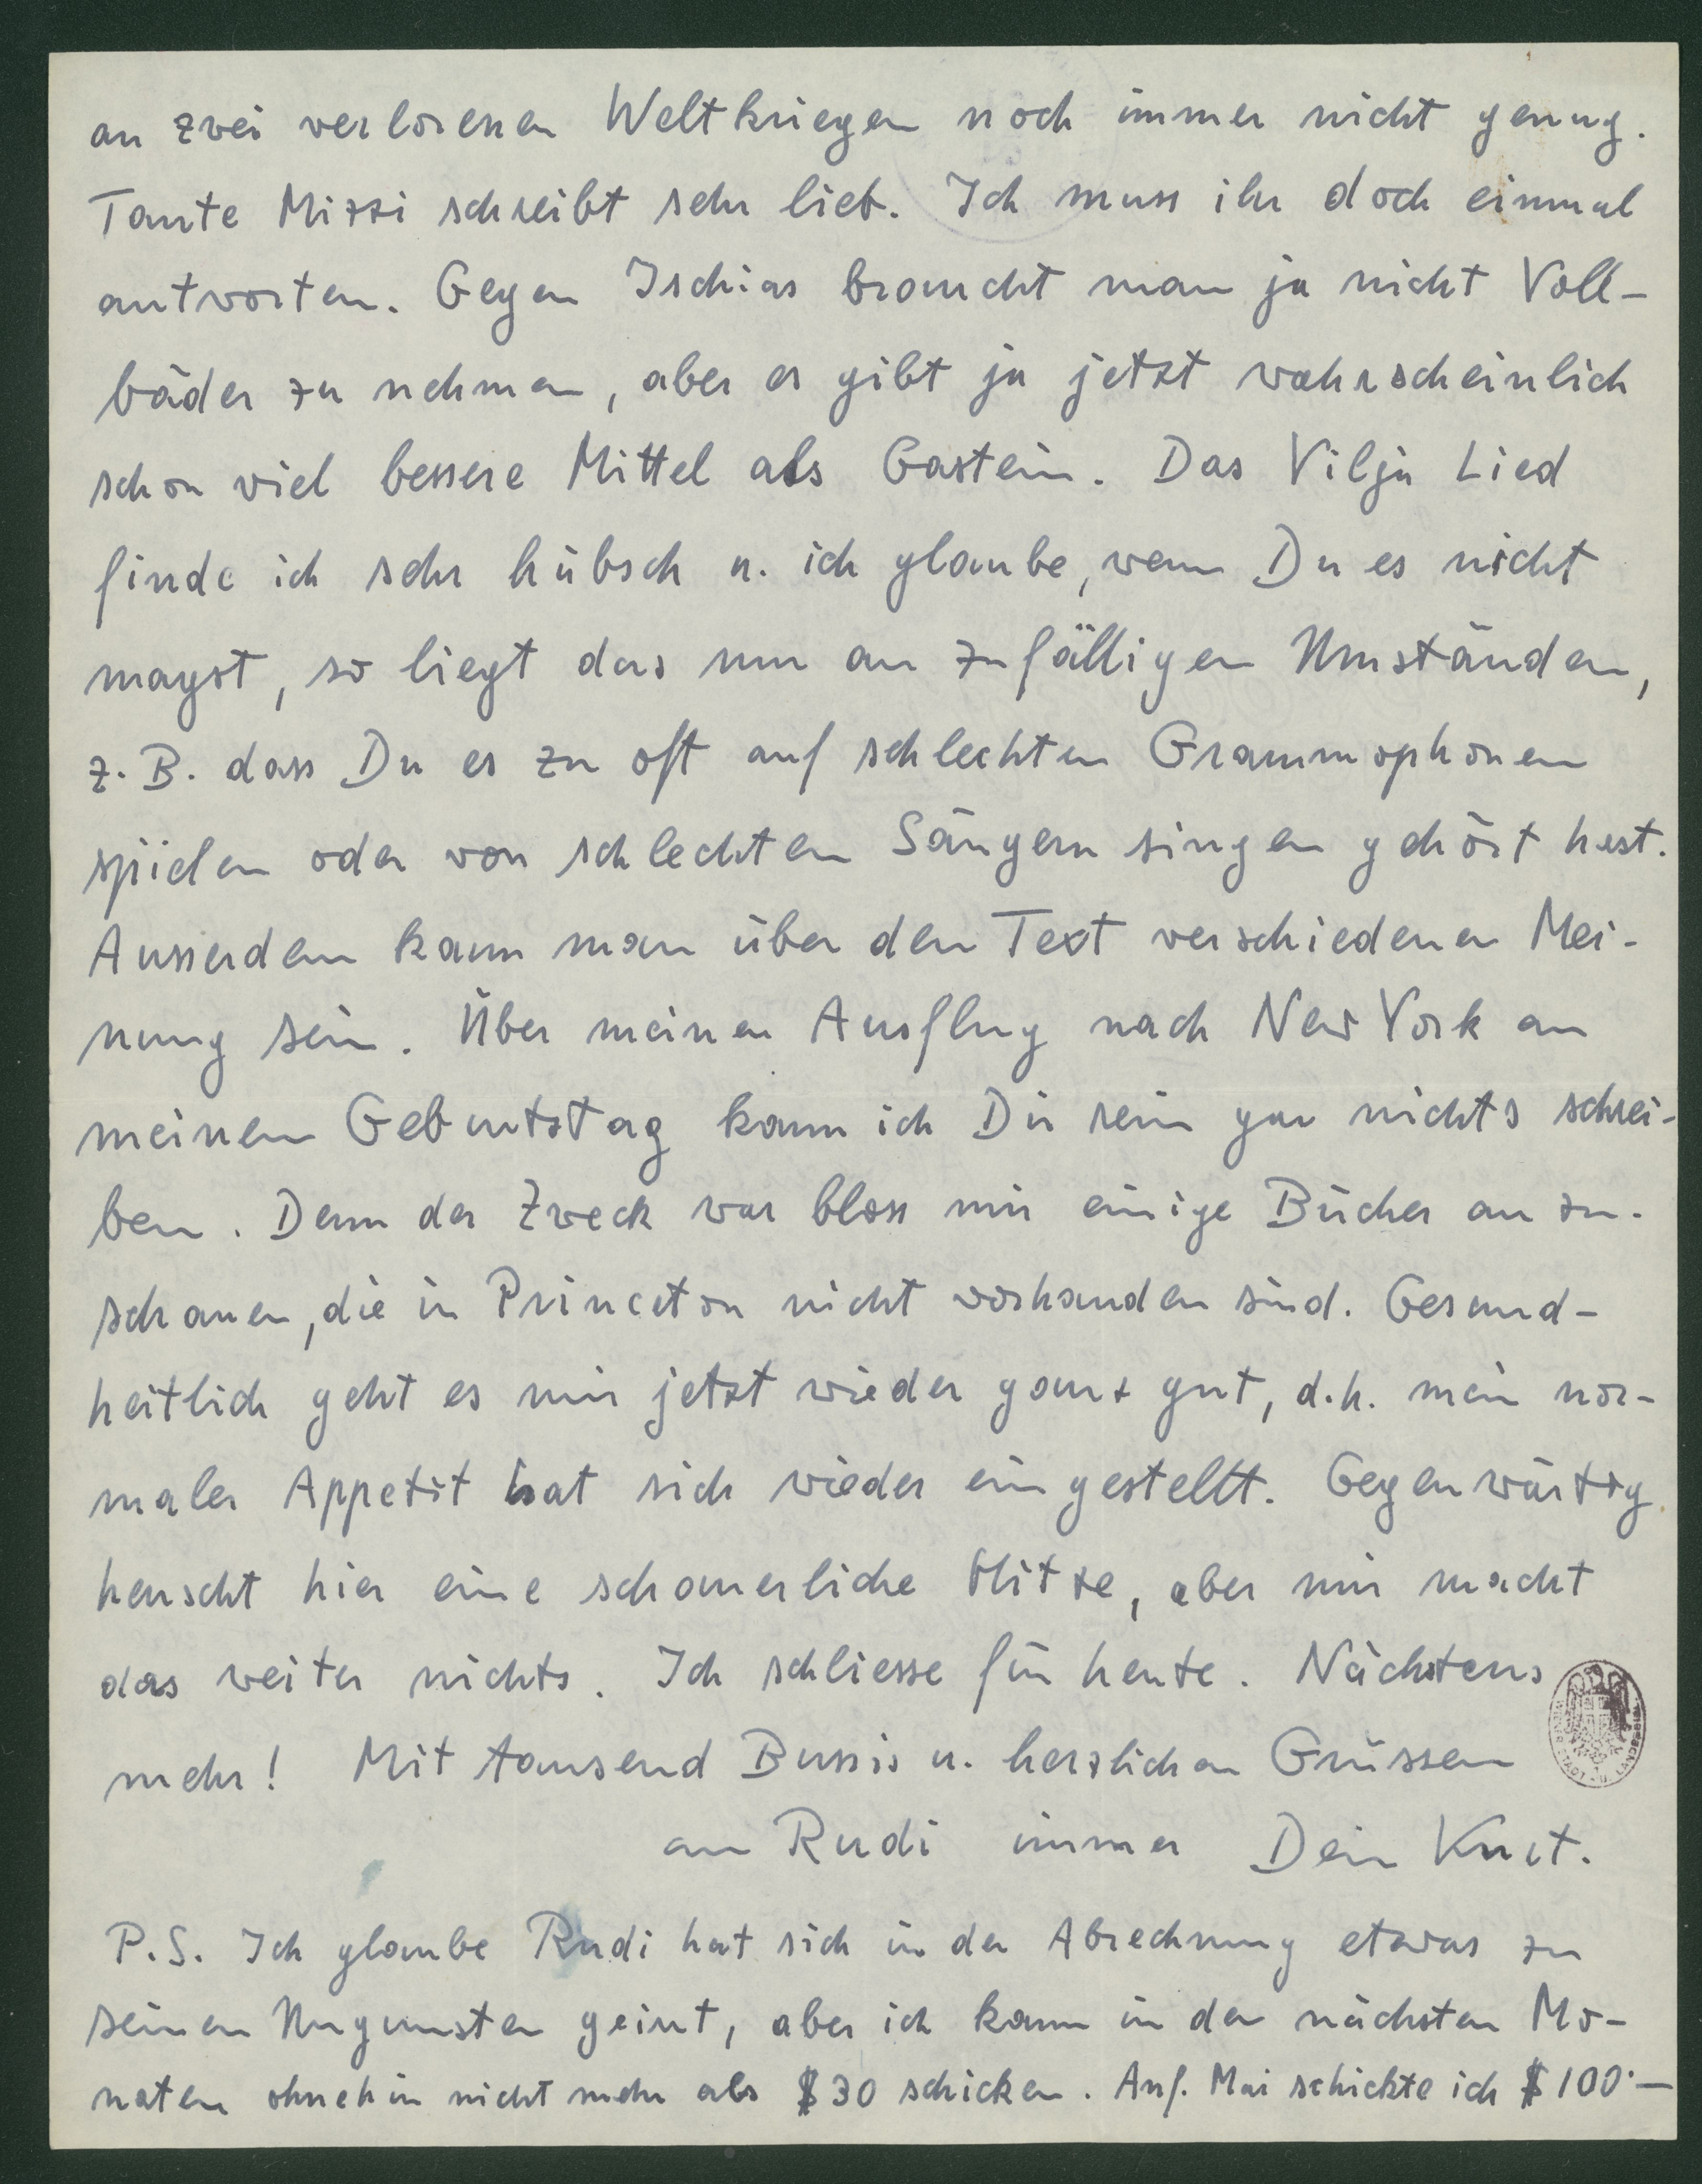 an zwei verlorenen Weltkriegen noch immer nicht genug.
Tante Mizzi schreibt sehr lieb. Ich muss ihr doch einmal
antworten. Gegen Ischias braucht man ja nicht Voll-
bäder zu nehmen, aber es gibt ja jetzt wahrscheinlich
schon viel bessere Mittel als Gastein. Das Vilja Lied
finde ich sehr hübsch u. ich glaube, wenn Du es nicht
magst, so liegt das nur an zufälligen Umständen,
z. B. dass Du es zu oft auf schlechten Grammophonen
spielen oder von schlechten Sängern singen gehört hast.
Ausserdem kann man über den Text verschiedener Mei-
nung sein. Über meinen Ausflug nach New York an
meinem Geburtstag kann ich Dir rein gar nichts schrei-
ben. Denn der Zweck war bloss mir einige Bücher anzu-
schauen, die in Princeton nicht vorhanden sind. Gesund-
heitlich geht es mir jetzt wieder ganz gut, d.h. mein nor-
maler Appetit hat sich wieder eingestellt. Gegenwärtig
herrscht hier eine schauerliche Hitze, aber mir macht
das weiter nichts. Ich schliesse für heute. Nächstens
mehr! Mit tausend Bussis u. herzlichen Grüssen
an Rudi immer Dein Kurt.
P.S. Ich glaube Rudi hat sich in der Abrechnung etwas zu
seinen Ungunsten geirrt, aber ich kann in den nächsten Mo-
naten ohnehin nicht mehr als $30 schicken. Anf. Mai schickte ich $100·—